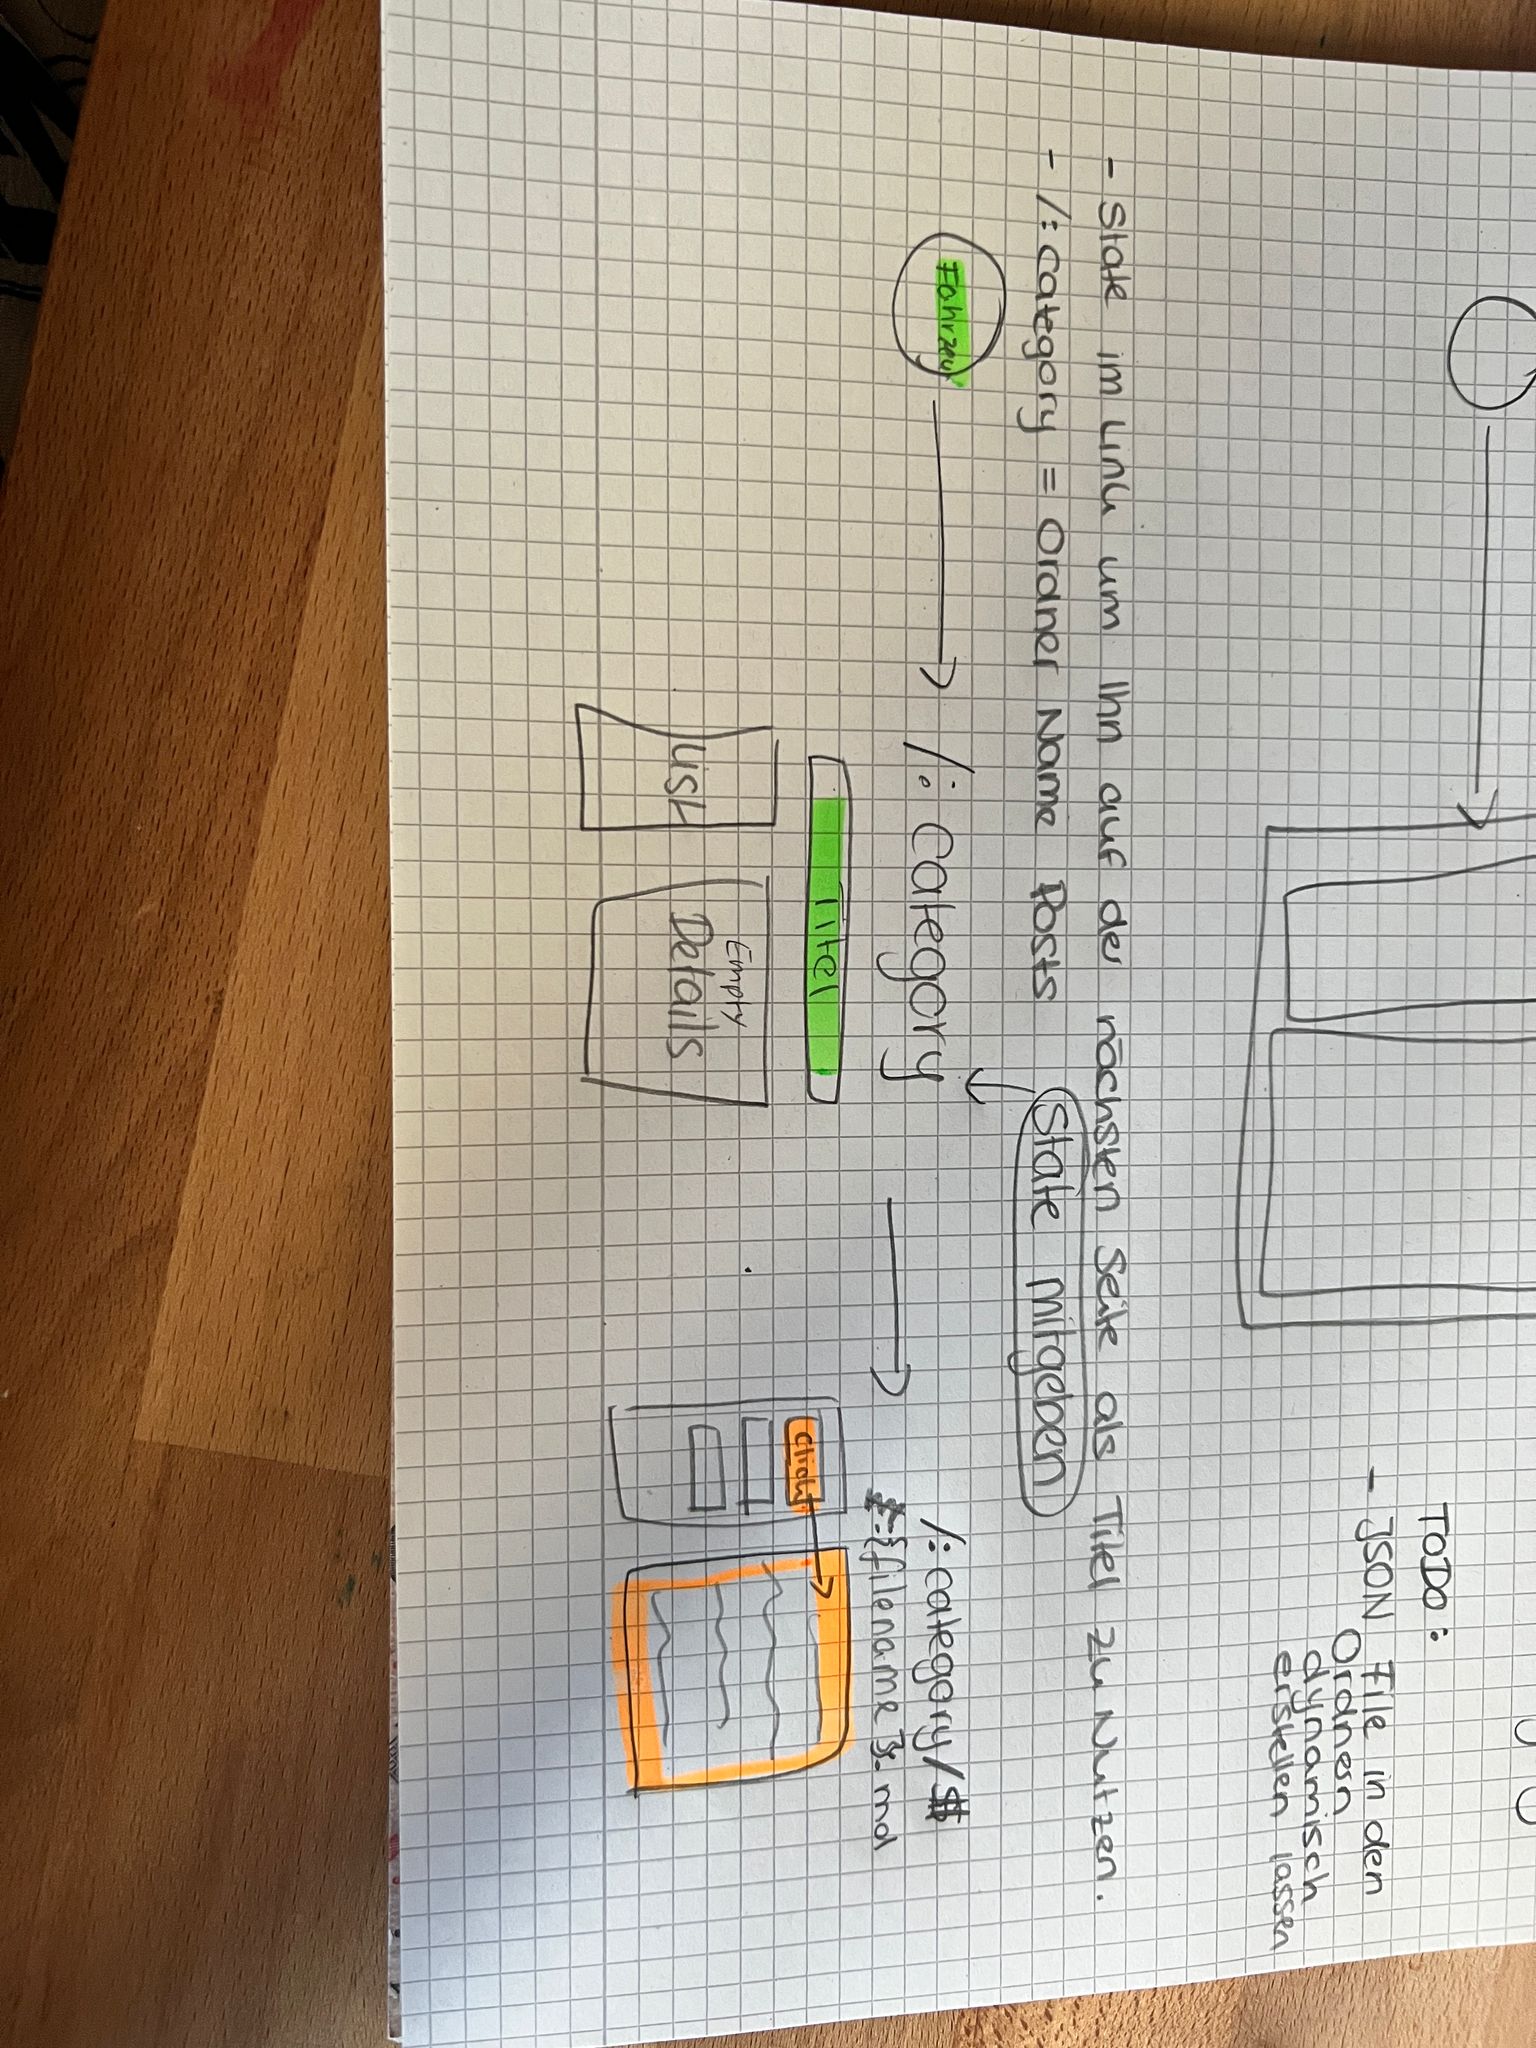 TODO:
- JSON File in den
Ordnern
dynamisch
erstellen lassen
- State im Link um Ihn auf der nächsten Seite als Titel zu Nutzen.
- /:category = Ordner Name Posts
State mitgeben
Fahrzeug
/:category
/:category/$
{filename}.md
Titel
List
Empty
Details
Click